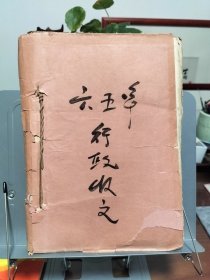 六五年
行政收文